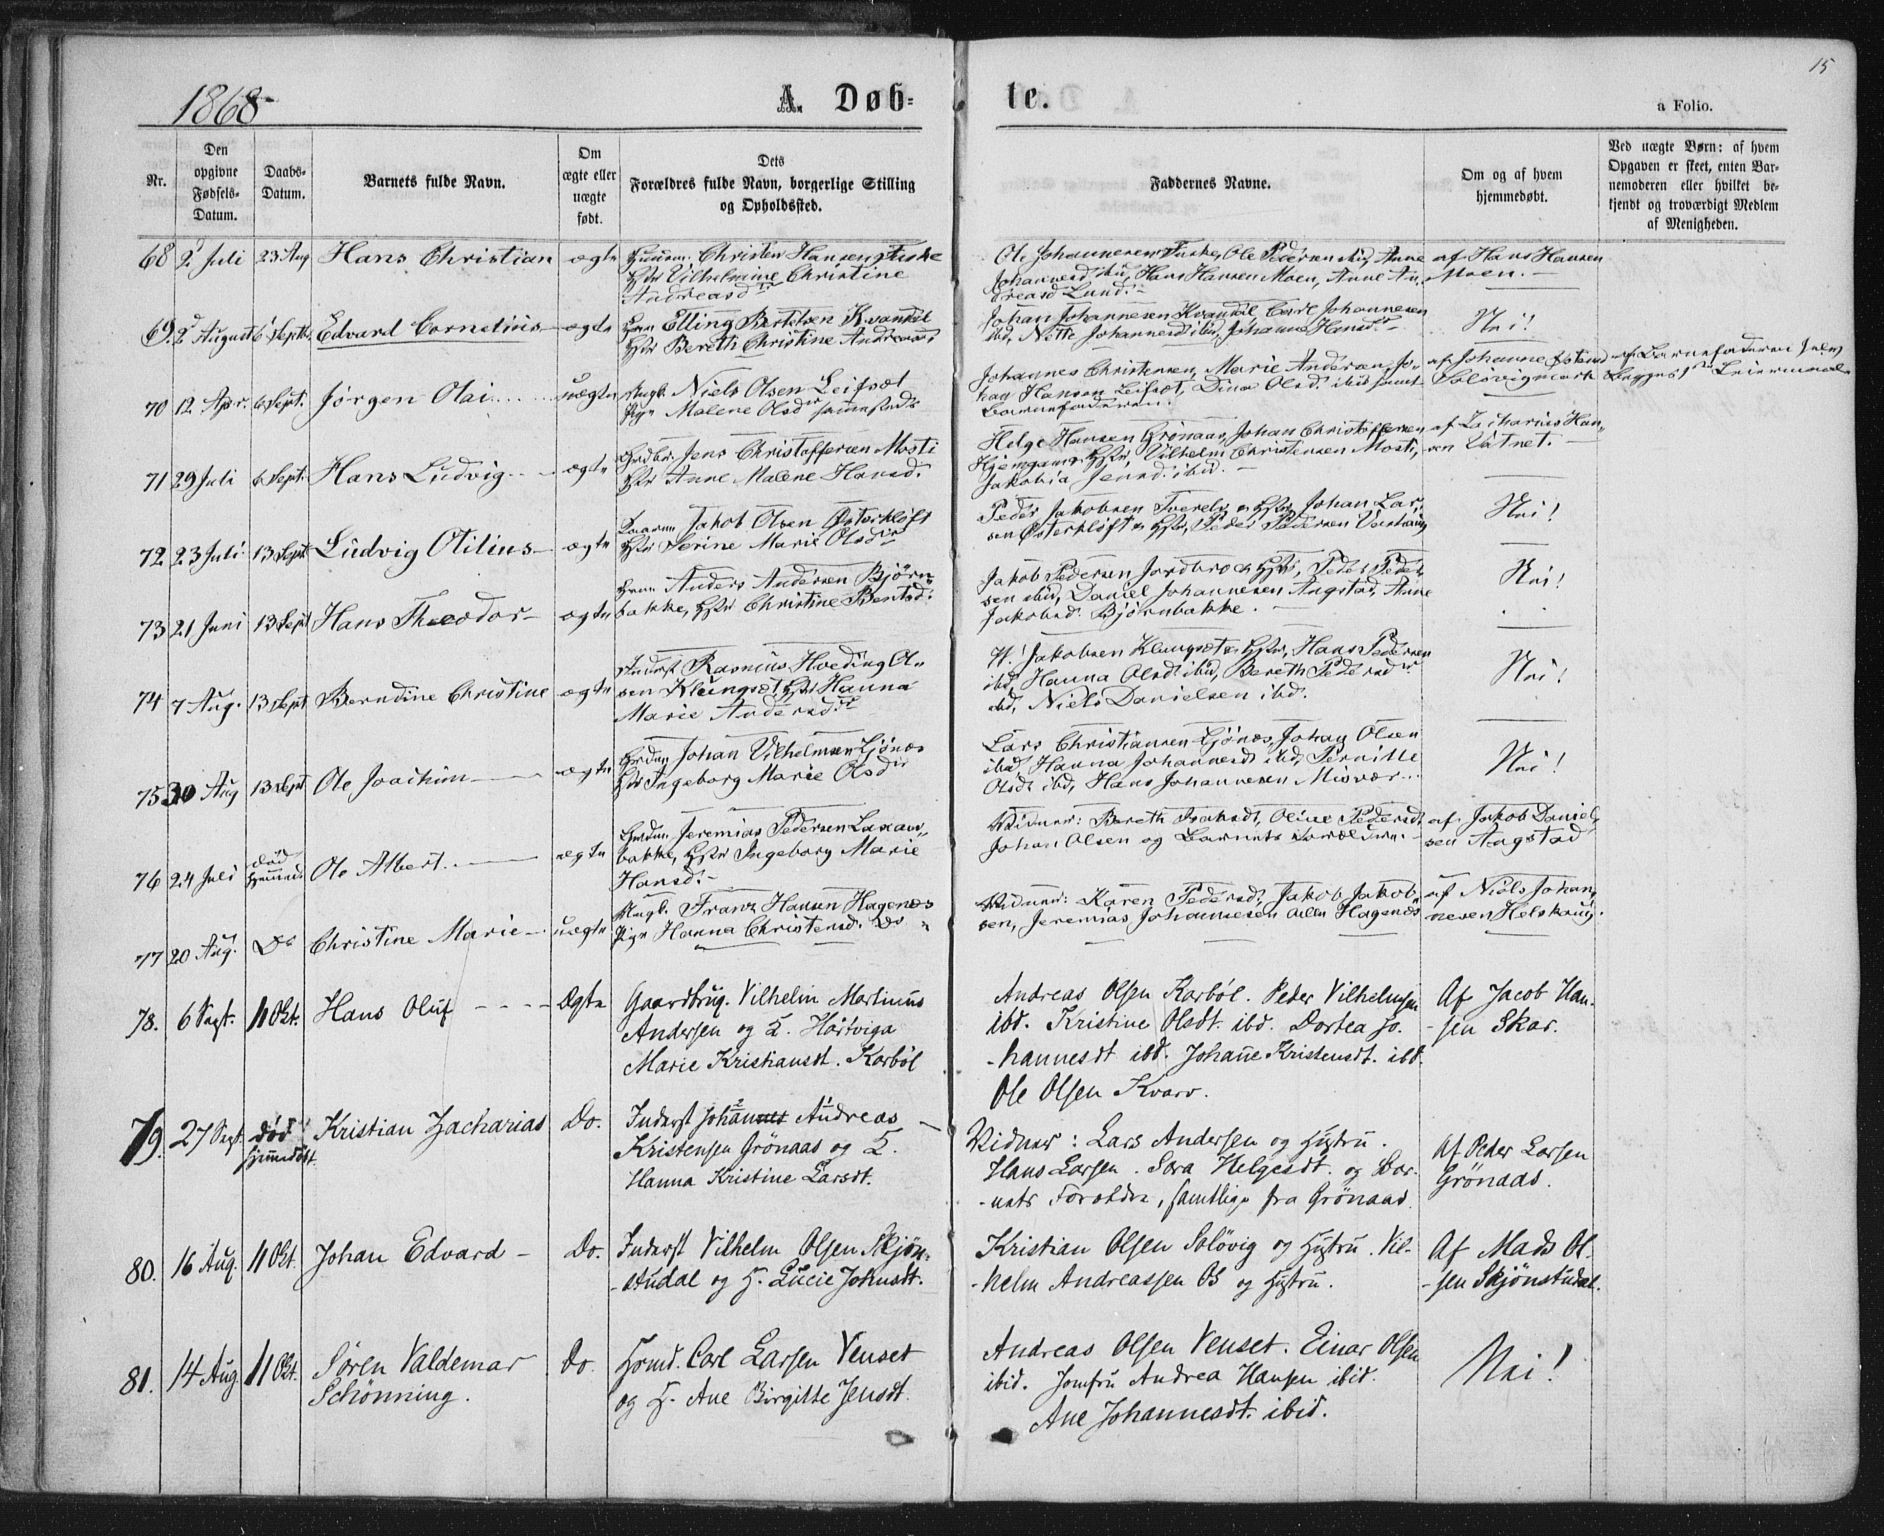 15
1868
A. Døb-
te.
a Folio.
Nr.
Den opgivne Fødsels-Datum.
Daabs-Datum.
Barnets fulde Navn.
Om ægte eller uægte født.
Dets Forældres fulde Navn, borgerlige Stilling og Opholdssted.
Faddernes Navne.
Om og af hvem hjemmedøbt.
Ved uægte Børn: af hvem Opgaven er skeet, enten Barnemoderen eller hvilket bekjendt og troværdigt Medlem af Menigheden.
68 2 Juli 23 Aug Hans Christian ægte
Christen Hansen
Hstr Vilhelmine Christine
Andreasdr
Ole Johannesen Ole Pedersen ibid, Anne
Johannesd ibid, Hans Hansen Moen, Anne An-
dreasd Lund.
af Hans Hansen
Moen.
69. 2 August 6 Septb. Edvard Cornelius ægte
Elling Bertelsen Kvanvik
Hstr Bereth Christine Andreasd
Johan Johannesen Carl Johannesen
ibd, Nette Johannesd ibid, Johanna Hansdr
Nei!
70 12 Apr. 6 Sept. Jørgen Olai uægte
Ungk. Niels Olsen Leifset
Pige Malene Olsdr sammesteds
Johannes Christensen, Marie Andersen, Jo-
han Hansen Leifset, Dina Olsd ibid samt
Barnefaderen.
af Johanne
Soløvigmark
af Barnefaderen
Leiermaal
71 29 Juli 6 Sept. Hans Ludvig ægte
Grdbr. Jens Christoffersen Mosti
Hstr Anne Malene Hansd.
Helge Hansen Grønaas, Johan Christoffersen
Hjemgam Hstr, Vilhelm Christensen Mosti,
Jakobia Jensd. ibid.
af Zacharias Han-
sen Vatnet.
72 23 Juli 13 Sept Ludvig Otilius ægte
Jakob Olsen Østerkløft
Hstr Serine Marie Olsdr
Peder Jakobsen Tverelv & Hstr, Johan Lar-
sen Østerkløft & Hstr, Peder Pedersen
Nei!
73 21 Juni 13 Sept Hans Theodor ægte
Anders Andersen Bjørn-
bakke, Hstr Christine Bentsd.
Jakob Pedersen Jordbro & Hstr, Peder Peder-
sen ibid, Daniel Johannesen Angstad, Anne
Jakobsd. Bjørnbakke.
Nei!
74 7 Aug. 13 Sept Berndine Christine ægte
Inderst Rasmus Hveding Ol-
sen Klungset Hstr Hanna
Marie Andersdr
H. Jakobsen Klungset & Hstr, Hans Pedersen
ibd Hanna Olsd ibid, Bereth Pedersdr
ibd, Niels Danielsen ibd.
Nei!
75 30 Aug 13 Sept Ole Joachim ægte
Johan Vilhelmsen Ljønes
Hstr Ingeborg Marie Olsdr
Lars Christiansen Ljønes, Johan Olsen
ibid, Hanna Johannesd ibid, Pernille
Olsd ibd, Hans Johannesen Misvær
Nei!
76 24 Juli død Hjemmed Ole Albert ægte
Jeremias Pedersen Laxaas-
bakke, Hstr Ingeborg Marie
Hansd.
Vidner: Bereth Isaksdt, Oline Pedersd,
Johan Olsen og Barnets Forældre.
af Jakob Daniel-
sen Angstad
77 20 Aug. Do Christine Marie uægte
Ungk. Franz Hansen Hagenes
Pige Hanna Christensd. Do
Vidner: Karen Pedersd, Jakob Jakob-
sen, Jeremias Johannesen alle Hagenes
af Niels Johan-
nesen Helskaug.
78. 6 Sept. 11 Okt. Hans Oluf Ægte
Gaardbrug. Vilhelm Martinus
Andersen og H. Hartviga
Marie Kristiansdt. Karbøl
Andreas Olsen Karbøl. Peder Vilhelmsen
ibd. Kristine Olsdt. ibd. Dortea Jo-
-hannesdt ibd. Johane Kristensdt. ibd.
Ole Olsen Kvarv.
Af Jacob Han-
-sen Skar.
79. 27 Sept. død hjemdøbt Kristian Zacharias Do.
Inderst Johannes Andreas
Kristensen Grønaas og H.
Hanna Kristine Larsdt.
Vidner: Lars Andersen og Hustru.
Hans Larsen. Sara Helgesdt. og Bar-
-nets Forældre, samtlige fra Grønaas.
Af Peder Larsen
Grønaas.
80. 16 Aug. 11 Okt. Johan Edvard Do.
Inderst Vilhelm Olsen Skjøn-
-studal og H. Lucie Johnsdt.
Kristian Olsen Soløvig og Hustru. Vil-
-helm Andreassen Os og Hustru.
Af Mads Ol-
-sen Skjønstudal.
81. 14 Aug. 11 Okt. Søren Valdemar
Schønning. Do.
Hsmd. Carl Larsen Venset
og H. Ane Birgitte Jensdt.
Andreas Olsen Venset. Einar Olsen
ibid. Jomfru Andrea Hansen ibid.
Ane Johannesdt. ibid.
Nei!